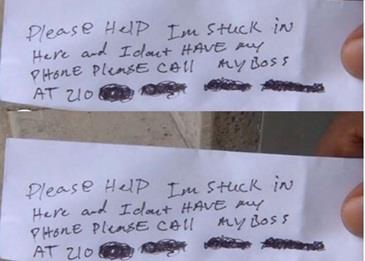 Please Help Im stuck in
Here and I dont HAVE my
PHONE PLease CALL MY BOSS
AT 210
Please HelP Im stuck in
Here and I dont HAVE my
PHONE PLease CALL MY BOSS
AT 210